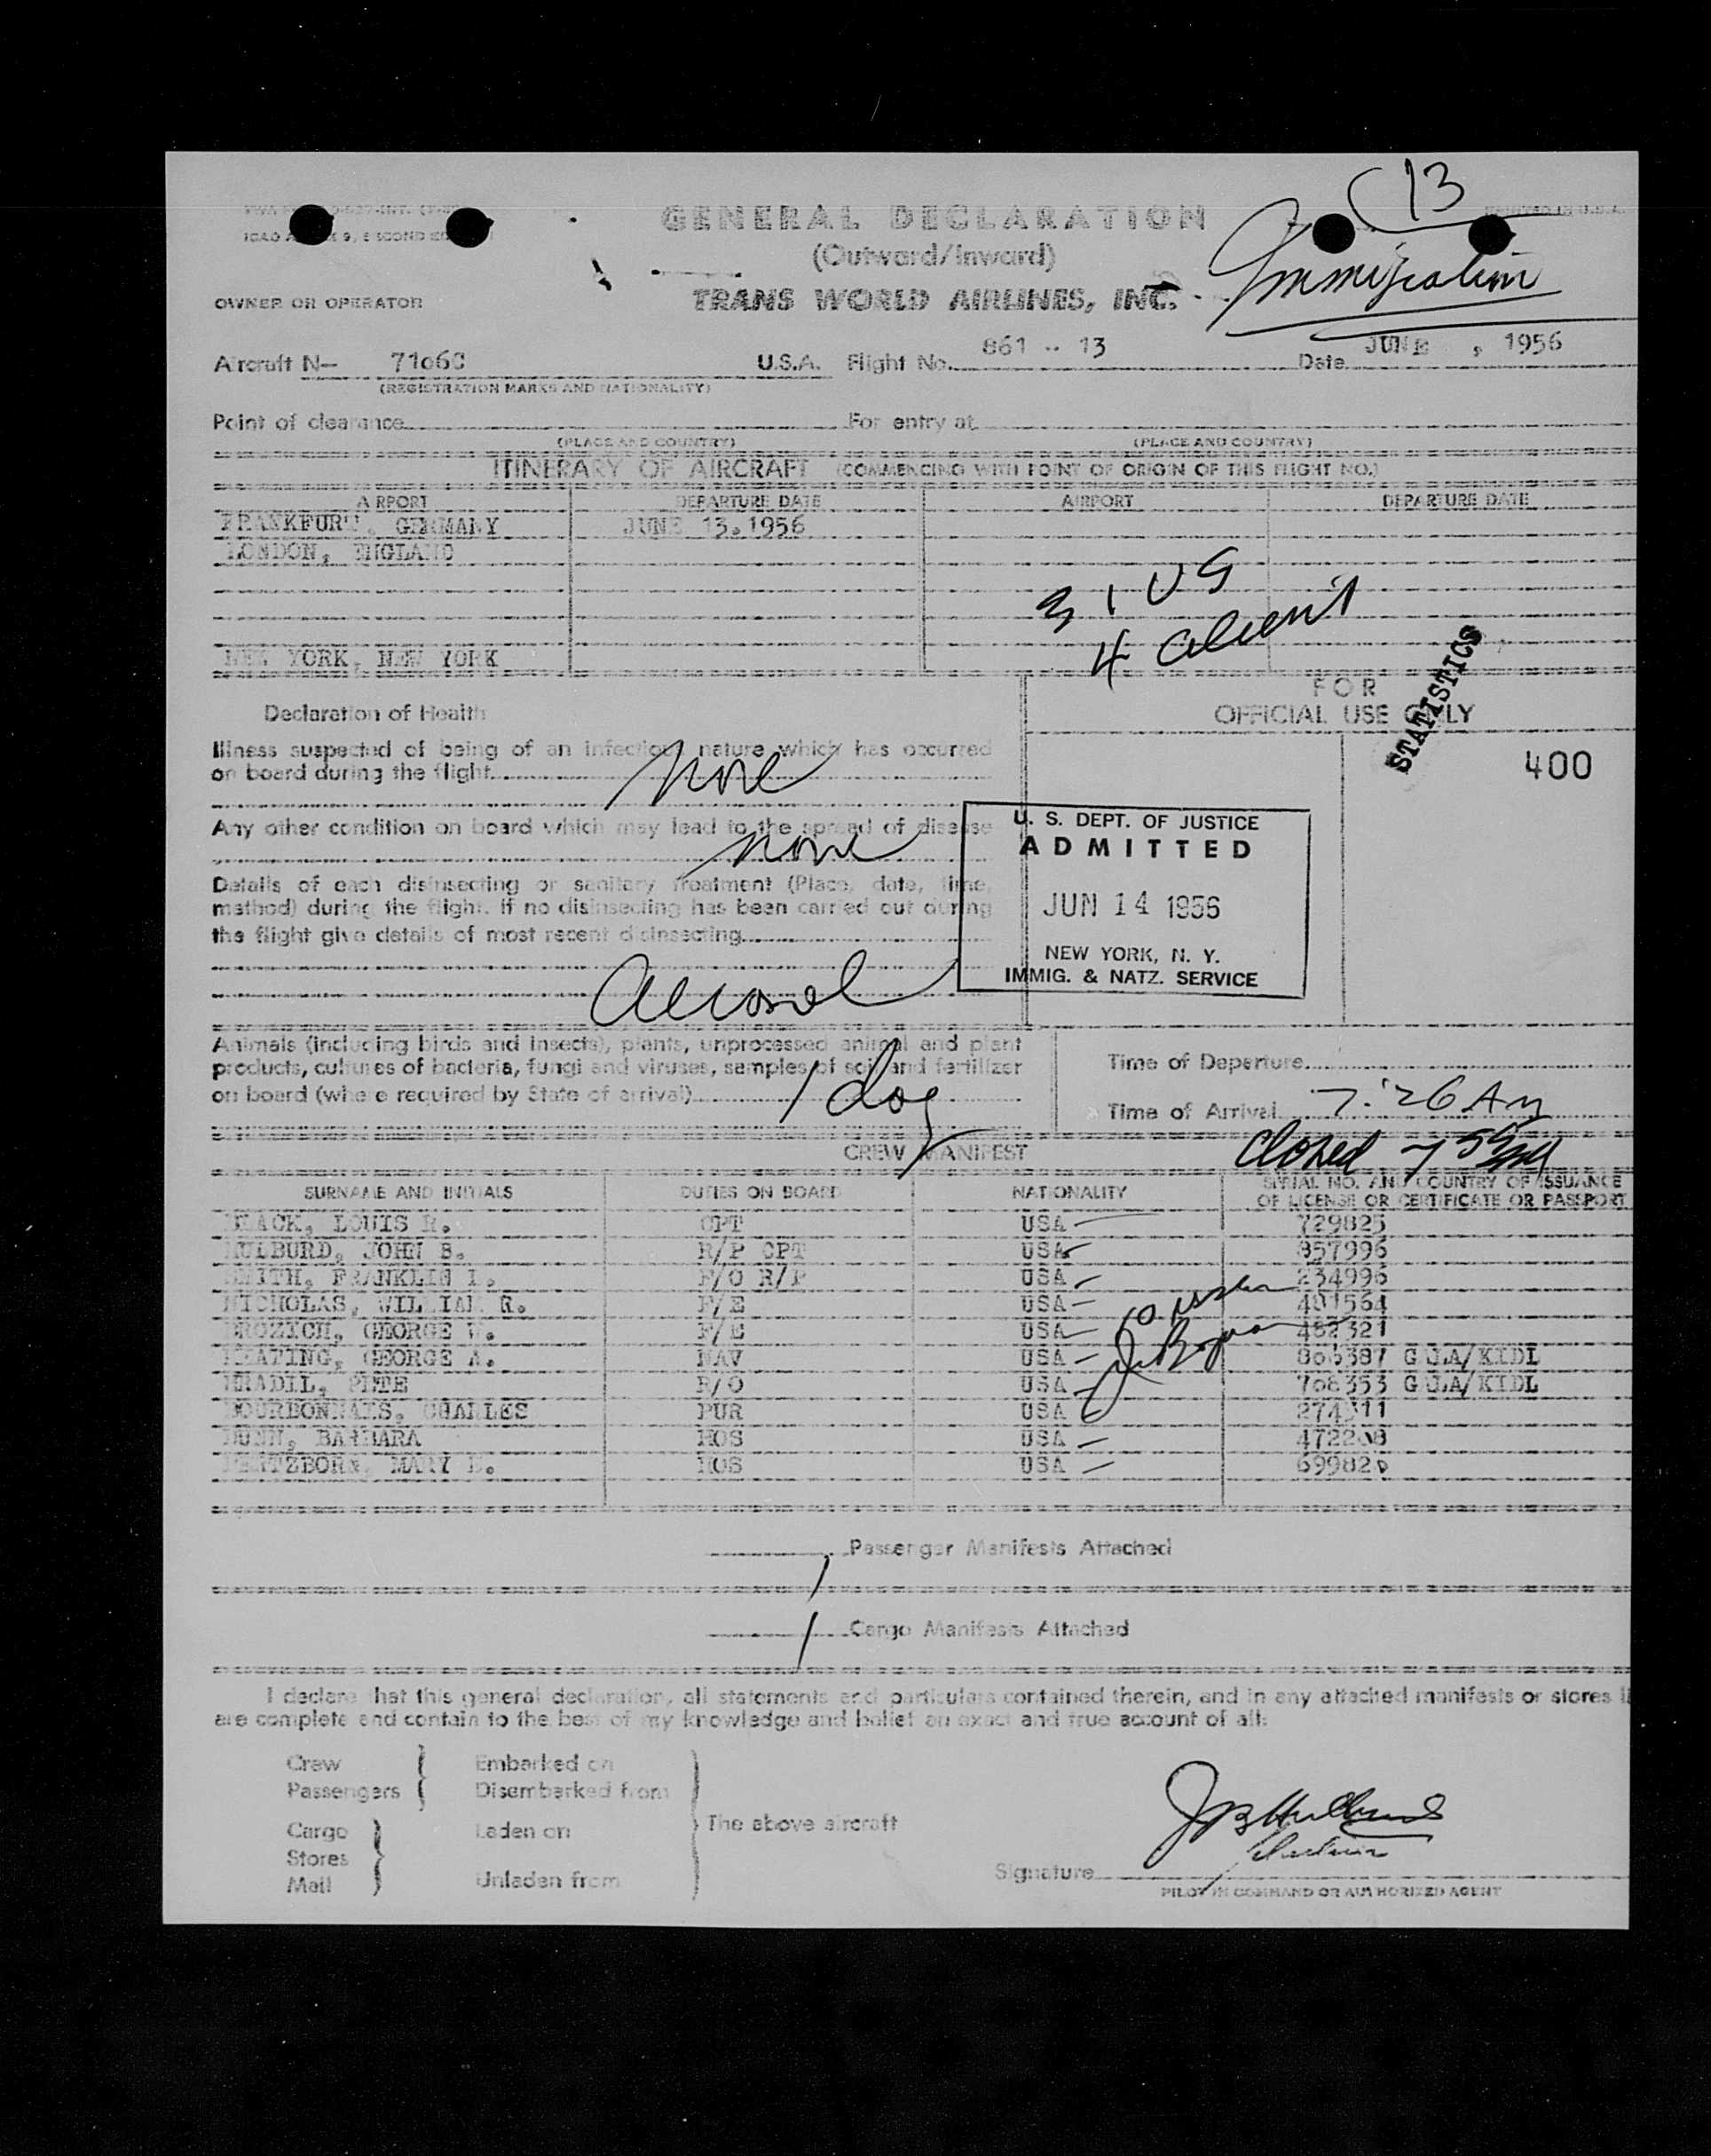 C13
GENERAL DECLARATION
(Outward/Inward)
Immigration
OWNER OR OPERATOR
TRANS WORLD AIRLINES, INC.
Aircraft N— U.S.A. Flight No. 861 - 13 Date JUNE , 1956
(REGISTRATION MARKS AND NATIONALITY)
Point of clearance For entry at
(PLACE AND COUNTRY) (PLACE AND COUNTRY)
ITINERARY OF AIRCRAFT (COMMENCING WITH POINT OF ORIGIN OF THIS FLIGHT NO.)
AIRPORT DEPARTURE DATE AIRPORT DEPARTURE DATE
FRANKFURT, GERMANY JUNE 13.1956
LONDON, ENGLAND
31 US
4 alien
NEW YORK, NEW YORK
STATISTICS
FOR
Declaration of Health
OFFICIAL USE ONLY
Illness suspected of being of an infectious nature which has occurred
on board during the flight none
400
Any other condition on board which may lead to the spread of disease
none
U. S. DEPT. OF JUSTICE
ADMITTED
JUN 14 1956
NEW YORK, N. Y.
IMMIG. & NATZ. SERVICE
Details of each disinsecting or sanitary treatment (Place, date, time,
method) during the flight. If no disinsecting has been carried out during
the flight give details of most recent disinsecting
aerosol
Animals (including birds and insects), plants, unprocessed animal and plant
products, cultures of bacteria, fungi and viruses, samples of soil and fertilizer
on board (where required by State of arrival) 1 dog
Time of Departure
Time of Arrival 7:26 AM
Closed
CREW MANIFEST
SURNAME AND INITIALS DUTIES ON BOARD NATIONALITY SERIAL NO. AND COUNTRY OF ISSUANCE
OF LICENSE OR CERTIFICATE OR PASSPORT
LOUIS R. CPT USA 729825
HULBURD, JOHN B. R/P CPT USA 357996
SMITH, FRANKLIN I. F/O R/P USA 234996
NICHOLAS, WILLIAM R. F/E USA 401564
GEORGE F/E USA 482321
KEATING, GEORGE A. NAV USA GQA/KIDL
HRADIL, PETE R/O USA 708353 GQA/KIDL
BOURBONNAIS, CHARLES PUR USA
DUNN, BARBARA HOS USA
MARY HOS USA
Passenger Manifests Attached
1
1 Cargo Manifests Attached
I declare that this general declaration, all statements and particulars contained therein, and in any attached manifests or stores
are complete and contain to the best of my knowledge and belief an exact and true account of all:
Crew Embarked on
Passengers Disembarked from
The above aircraft
Cargo Laden on
Stores
Mail Unladen from
JB Hulburd
Signature
PILOT IN COMMAND OR AUTHORIZED AGENT